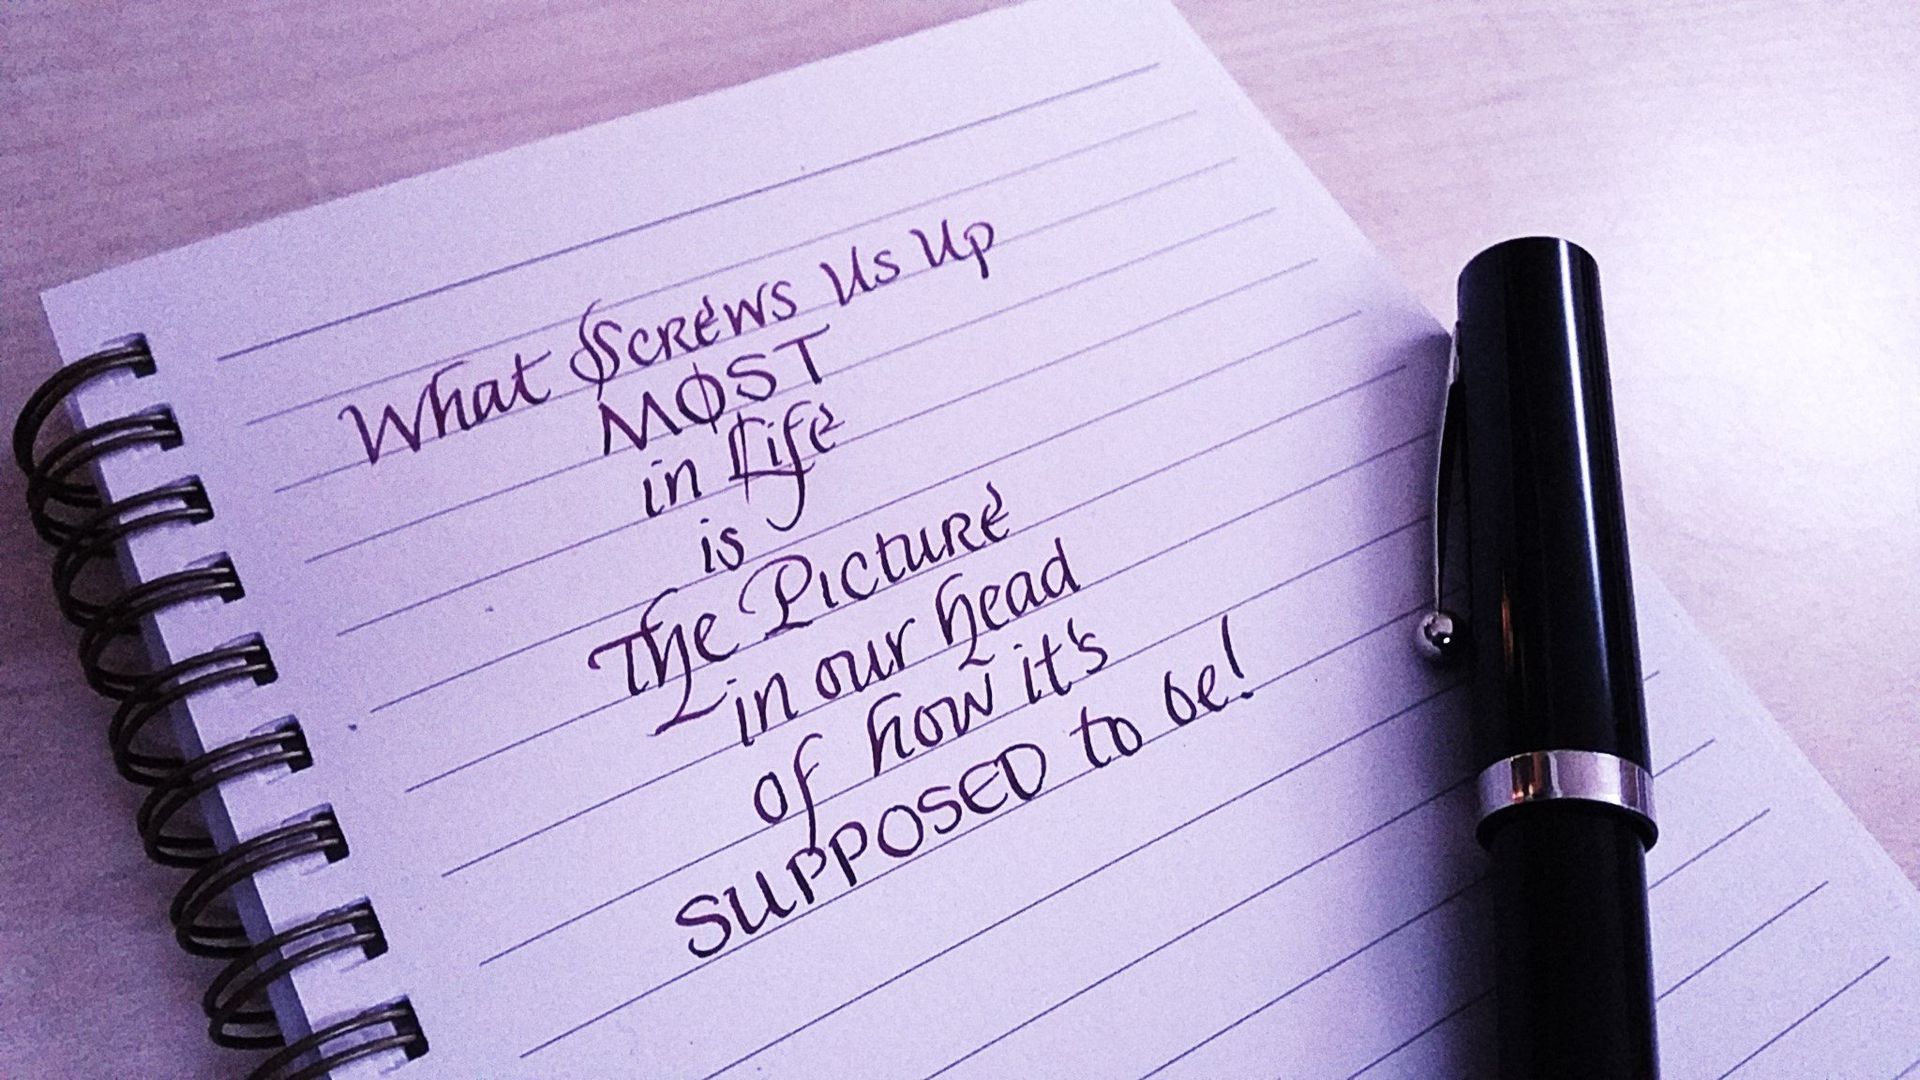 What Screws Us Up
MOST
in Life
is
The Picture
in our head
of how it's
SUPPOSED to be!